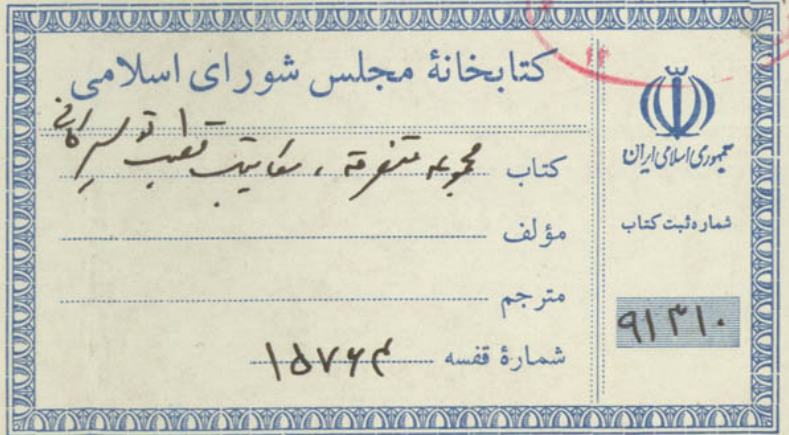 کتابخانهٔ مجلس شورای اسلامی
کتاب مجموعه متفرقه ، مکاتیب قطب
مؤلف
مترجم
شمارهٔ قفسه ۱۵۷۶۴
جمهوری اسلامی ایران
شماره ثبت کتاب
۹۱۳۱۰